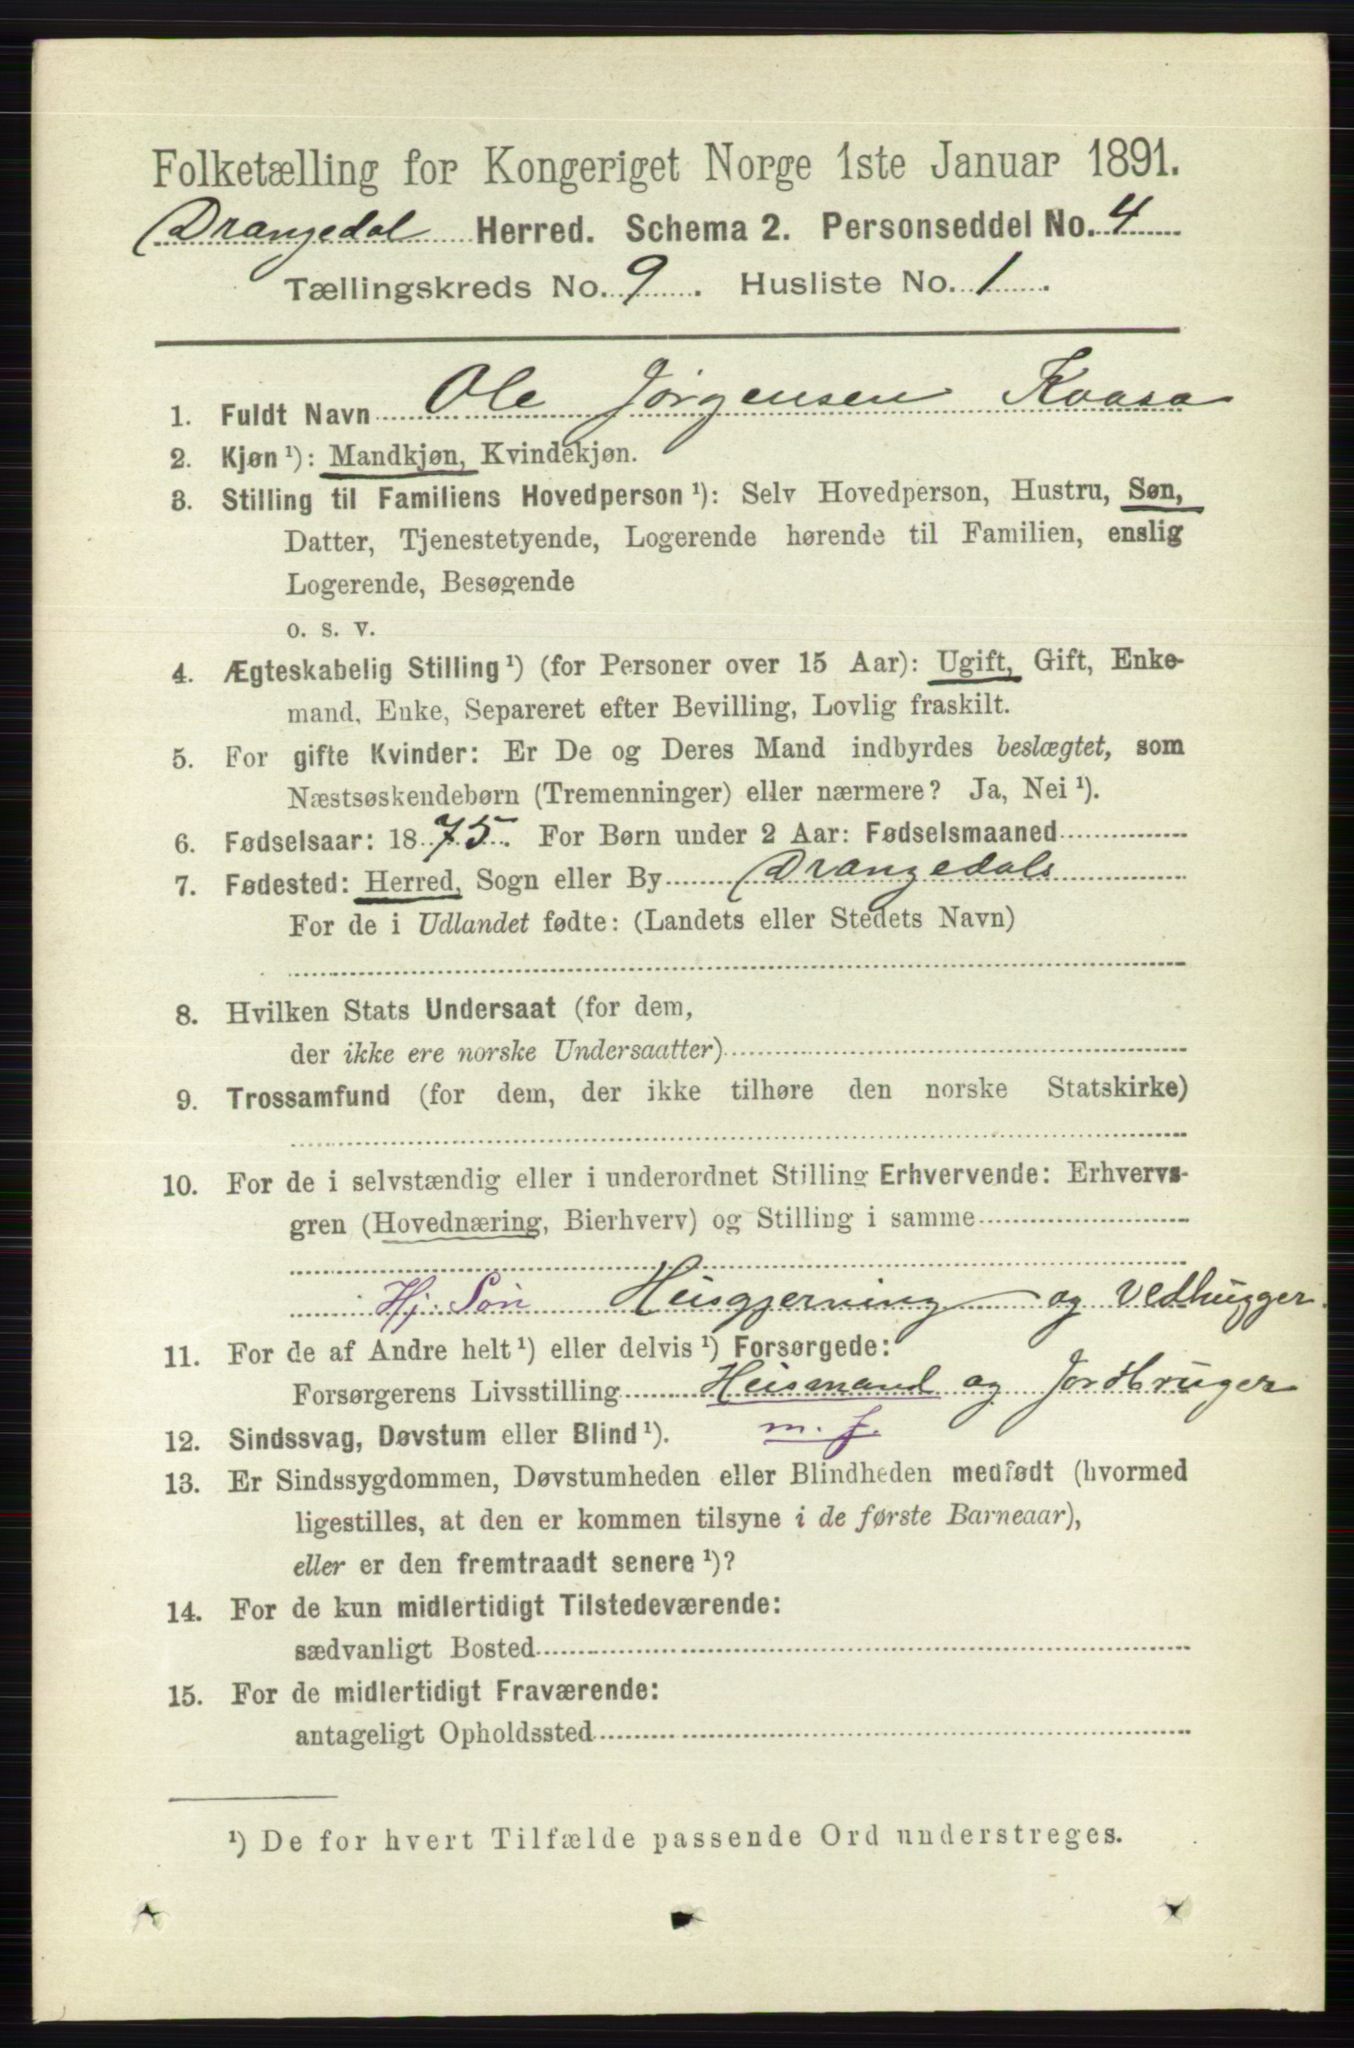 Folketælling for Kongeriget Norge 1ste Januar 1891.
Drangedal Herred. Schema 2. Personseddel No. 4
Tællingskreds No. 9. Husliste No. 1.
1. Fuldt Navn Ole Jörgensen Kaasa
2. Kjøn ¹): Mandkjøn, Kvindekjøn.
3. Stilling til Familiens Hovedperson ¹): Selv Hovedperson, Hustru, Søn,
Datter, Tjenestetyende, Logerende hørende til Familien, enslig
Logerende, Besøgende
o. s. v.
4. Ægteskabelig Stilling ¹) (for Personer over 15 Aar): Ugift, Gift, Enke-
mand, Enke, Separeret efter Bevilling, Lovlig fraskilt.
5. For gifte Kvinder: Er De og Deres Mand indbyrdes beslægtet, som
Næstsøskendebørn (Tremenninger) eller nærmere? Ja, Nei ¹).
6. Fødselsaar: 1875. For Børn under 2 Aar: Fødselsmaaned
7. Fødested: Herred, Sogn eller By Drangedals
For de i Udlandet fødte: (Landets eller Stedets Navn)
8. Hvilken Stats Undersaat (for dem,
der ikke ere norske Undersaatter)
9. Trossamfund (for dem, der ikke tilhøre den norske Statskirke)
10. For de i selvstændig eller i underordnet Stilling Erhvervende: Erhvervs-
gren (Hovednæring, Bierhverv) og Stilling i samme
Hj. Sön Husgjerning og Vedhugger.
11. For de af Andre helt ¹) eller delvis ¹) Forsørgede:
Forsørgerens Livsstilling Husmand og Jordbruger
12. Sindssvag, Døvstum eller Blind ¹). m. J.
13. Er Sindssygdommen, Døvstumheden eller Blindheden medfødt (hvormed
ligestilles, at den er kommen tilsyne i de første Barneaar),
eller er den fremtraadt senere ¹)?
14. For de kun midlertidigt Tilstedeværende:
sædvanligt Bosted
15. For de midlertidigt Fraværende:
antageligt Opholdssted
¹) De for hvert Tilfælde passende Ord understreges.